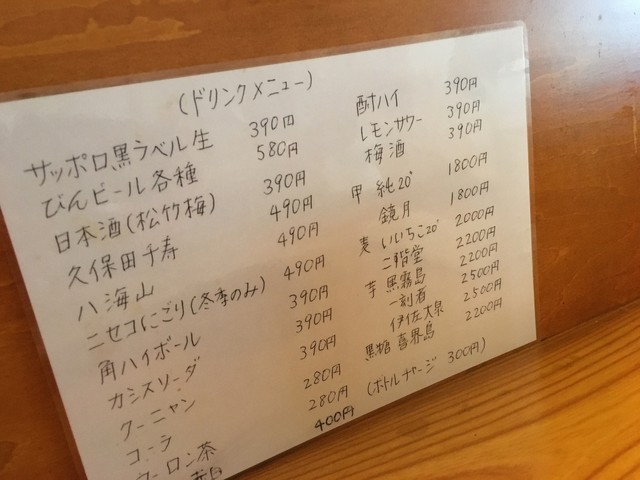 (ドリンクメニュー)
サッポロ黒ラベル生 390円
びんビール各種 580円
日本酒(松竹梅) 390円
久保田千寿 490円
八海山 490円
ニセコにごり(冬季のみ) 490円
角ハイボール 390円
カシスソーダ 390円
クーニャン 390円
コーラ 280円
ウーロン茶 280円
400円
酎ハイ 390円
レモンサワー 390円
梅酒 390円
甲 純20° 1800円
鏡月 1800円
麦 いいちこ20° 2000円
二階堂 2200円
芋 黒霧島 2200円
一刻者 2500円
伊佐大泉 2500円
黒糖 喜界島 2200円
(ボトルチャージ 300円)